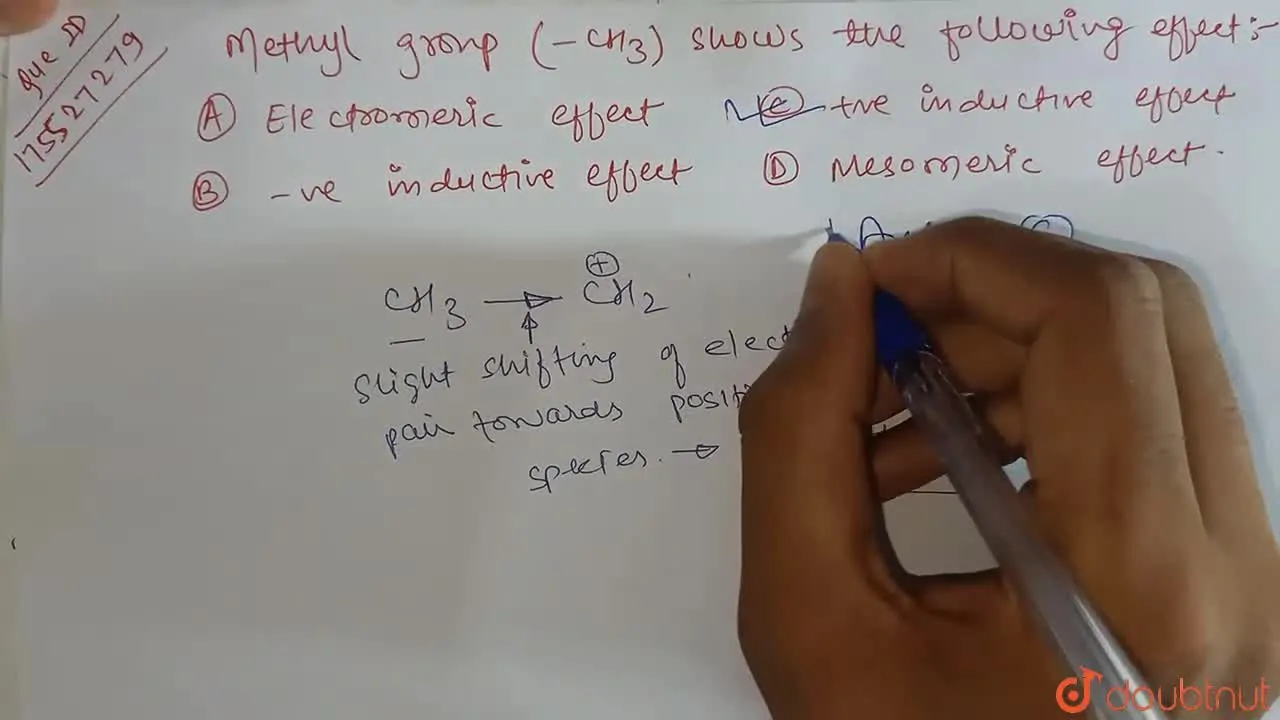 Que ID
175527279
Methyl group (-CH3) shows the following effect:-
(A) Electromeric effect (C) +ve inductive effect
(B) -ve inductive effect (D) Mesomeric effect.
CH3 → CH2
+
slight shifting of
pair towards
species. →
doubtnut